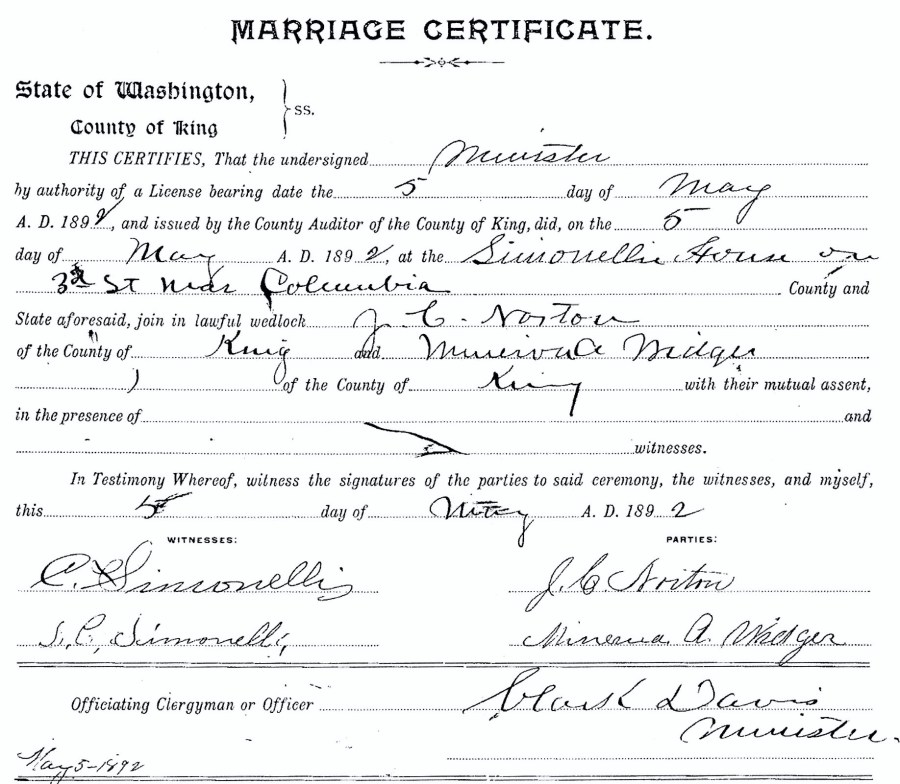 MARRIAGE CERTIFICATE.
State of Washington,
County of King
ss.
THIS CERTIFIES, That the undersigned Minister
by authority of a License bearing date the 5 day of May
A. D. 1892, and issued by the County Auditor of the County of King, did, on the 5
day of May A. D. 1892, at the Simonellis House on
3d St near Columbia County and
State aforesaid, join in lawful wedlock J. C. Norton
of the County of King and Minerva A Widger
of the County of King with their mutual assent,
in the presence of and
witnesses.
In Testimony Whereof, witness the signatures of the parties to said ceremony, the witnesses, and myself,
this 5 day of May A. D. 1892
WITNESSES: PARTIES:
C. Simonellis J. C Norton
S. C. Simonelli, Minerva A. Widger
Officiating Clergyman or Officer Clark Davis
Minister.
May 5-1892